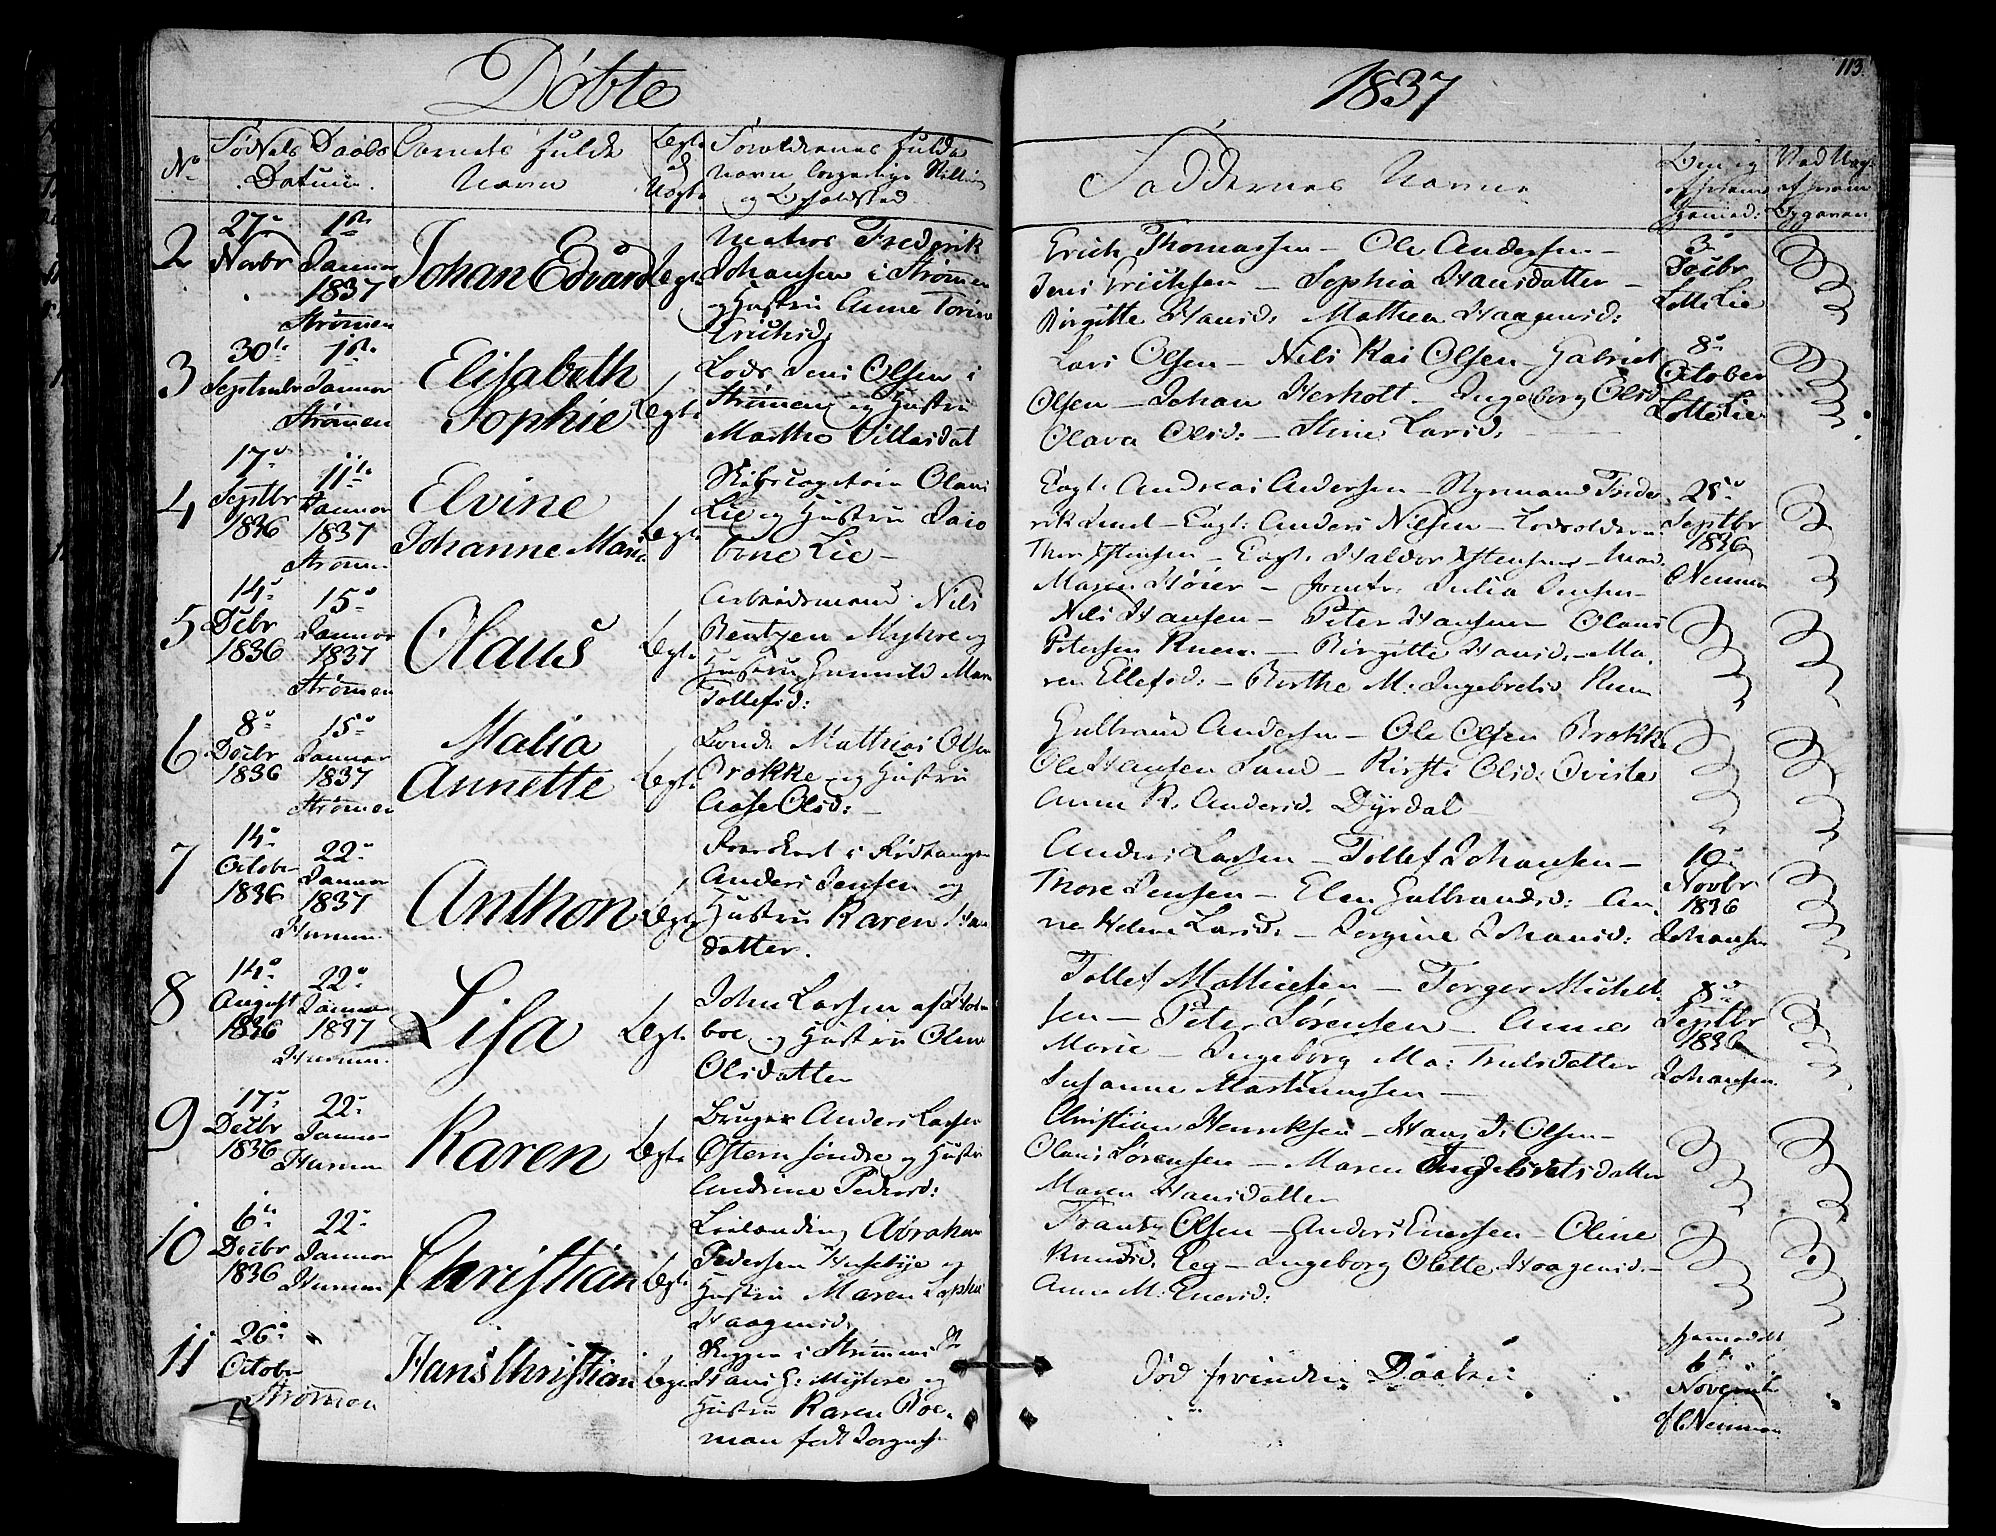 Døbte
1837
113.
No
Fødsels Daabs
Datum.
Barnets fulde
Navn
Legte
Uegte
Forældrenes fulde
Navn borgerlige Stilling
og Opholdsted
Faddernes Navne
2
27de
Novbr
1ste
Januar
1837
Strømmen
Johan Edvard
Legte
Matros Frederik
Johansen i Strømmen
og Hustru Anne Torine
Erichsd:
Erich Thomassen – Ole Andersen –
Jens Erichsen – Sophia Hansdatter –
Birgitte Hansd: Mathea Haagensd:
3de
Decbr
Lotte Lie
3
30te
Septembr
1ste
Januar
Strømen
Elisabeth
Sophie
Legte
Lods Jens Olsen i
Strømmen og Hustru
Martha
Lars Olsen – Nils Kai Olsen – Gabriel
Olsen – Johan Herholt – Ingeborg Olsd
Olava Olsd: – Stine Larsd:
8de
October
Lotte Lie
4
17de
Septbr
1836
11te
Januar
1837
Strømm.
Elvine
Johanne Marie
Legte
Skibscapitain Olaus
Lie og Hustru Jaco
bine Lie –
Capt: Andreas Andersen – Styrmand Frede
rik Lund – Capt: Anders Nilsen – Lodsolderm.
Thor – Capt. Haldor
Maren Høier – Jomfr: Julia Jensen
25de
Septbr
1836
Neuman
5
14de
Decbr
1836
15de
Januar
1837
Strømmen
Olaus
Legte
Arbeidsmand Nils
Bentzen Myhre og
Hustru Gunnild Mari
Tollefsd:
Nils Hansen – Peter Hansen Olaus
Petersen Ruen – Birgitte Hansd: – Ma,
ren Ellefsd: – Berthe M: Ingebretsd Ruen
6
8de
Decbr
1836
15de
Januar
1837
Strømmen
Malia
Annette
Legte
Bonde Mathias Olsen
Brokke og Hustru
Aase Olsd: –
Gulbrand Andersen – Ole Olsen Brokke
Ole Hansen Sand – Kirsti Olsd: Qviste
Anne K. Andersd. Dyrdal –
7
14de
October
1836
22de
Januar
1837
Hurum.
Anthon
Legte
i Rødtangen
Anders Jensen og
Hustru Karen Han
datter.
Anders Larsen – Tollef Johansen –
Thore Jensen – Elen Gulbrandsd: – An,
ne Helene Larsd: – Jorgine Johansd:
10de
Novbr
1836
Johansen
8
14de
August
1836
22de
Januar
1837
Hurum.
Lisa
Legte
John Larsen af Holm
boe og Hustru Olea
Olsdatter
Tollef Mathiesen – Torger Michel
sen – Peter Sørensen – Anne
Marie – Ingeborg Ma: Trulsdatter
Susanne Martinussen –
8de
Septbr
1836
Johansen
9
17de
Decbr
1836
22de
Januar
Hurum
Karen
Legte
Bruger Anders Larsen
Østern søndre og Hustru
Andrine Pedersd:
Christian Henriksen – Hans J. Olsen –
Olaus Sørensen – Maren Ingebretsdatter
Maren Hansdatter
10
6te
Decbr
1836
22de
Januar
Hurum
Christian
Legte
Leilænding Abraham
Pedersen Husebye og
Hustru Maren Sophie
Haagensd.
Frants Olsen – Anders Enersen – Oline
Knudsd. Eeg – Ingeborg Olette Haagensd. –
Anne M: Enersd:
11
26de
October
Strømmen
Hans Christian
Legte
Skipper i Strømmen
Hans G: Myhre og
Hustru Karen Boe,
man født Jørgensen
Død forinden Daaben
hjemmedøbt
6te
Novembr
af Neuman